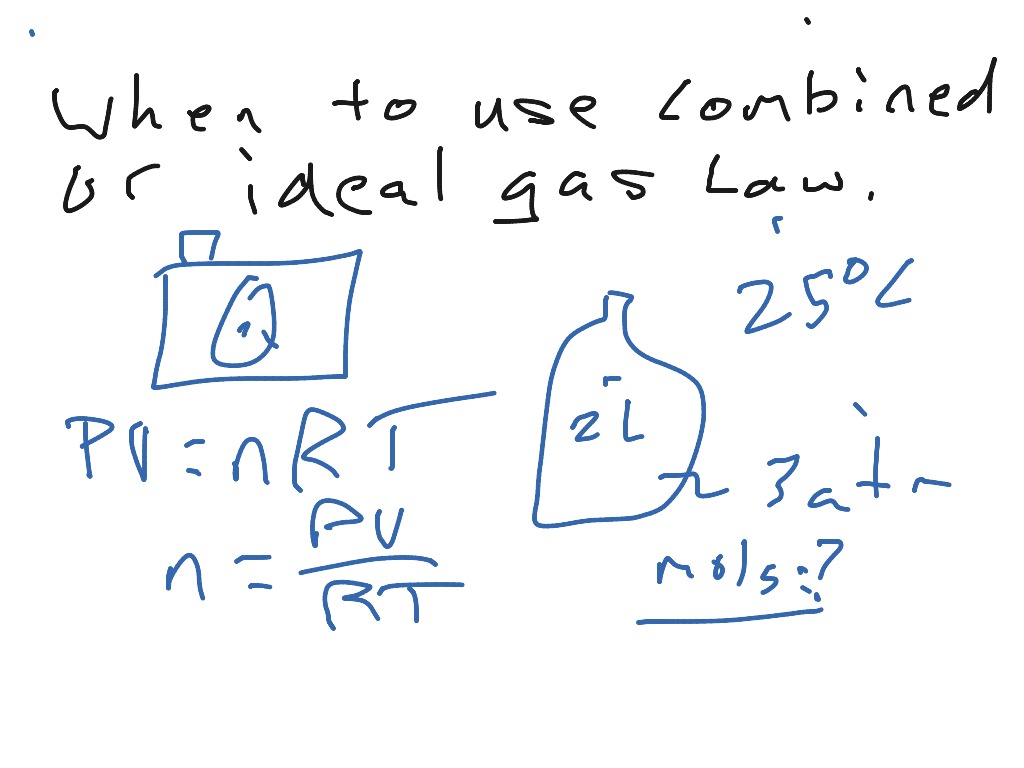 When to use combined
or ideal gas Law.
25°C
2L
PV = nRT
3atm
n = PV
RT
mols = ?